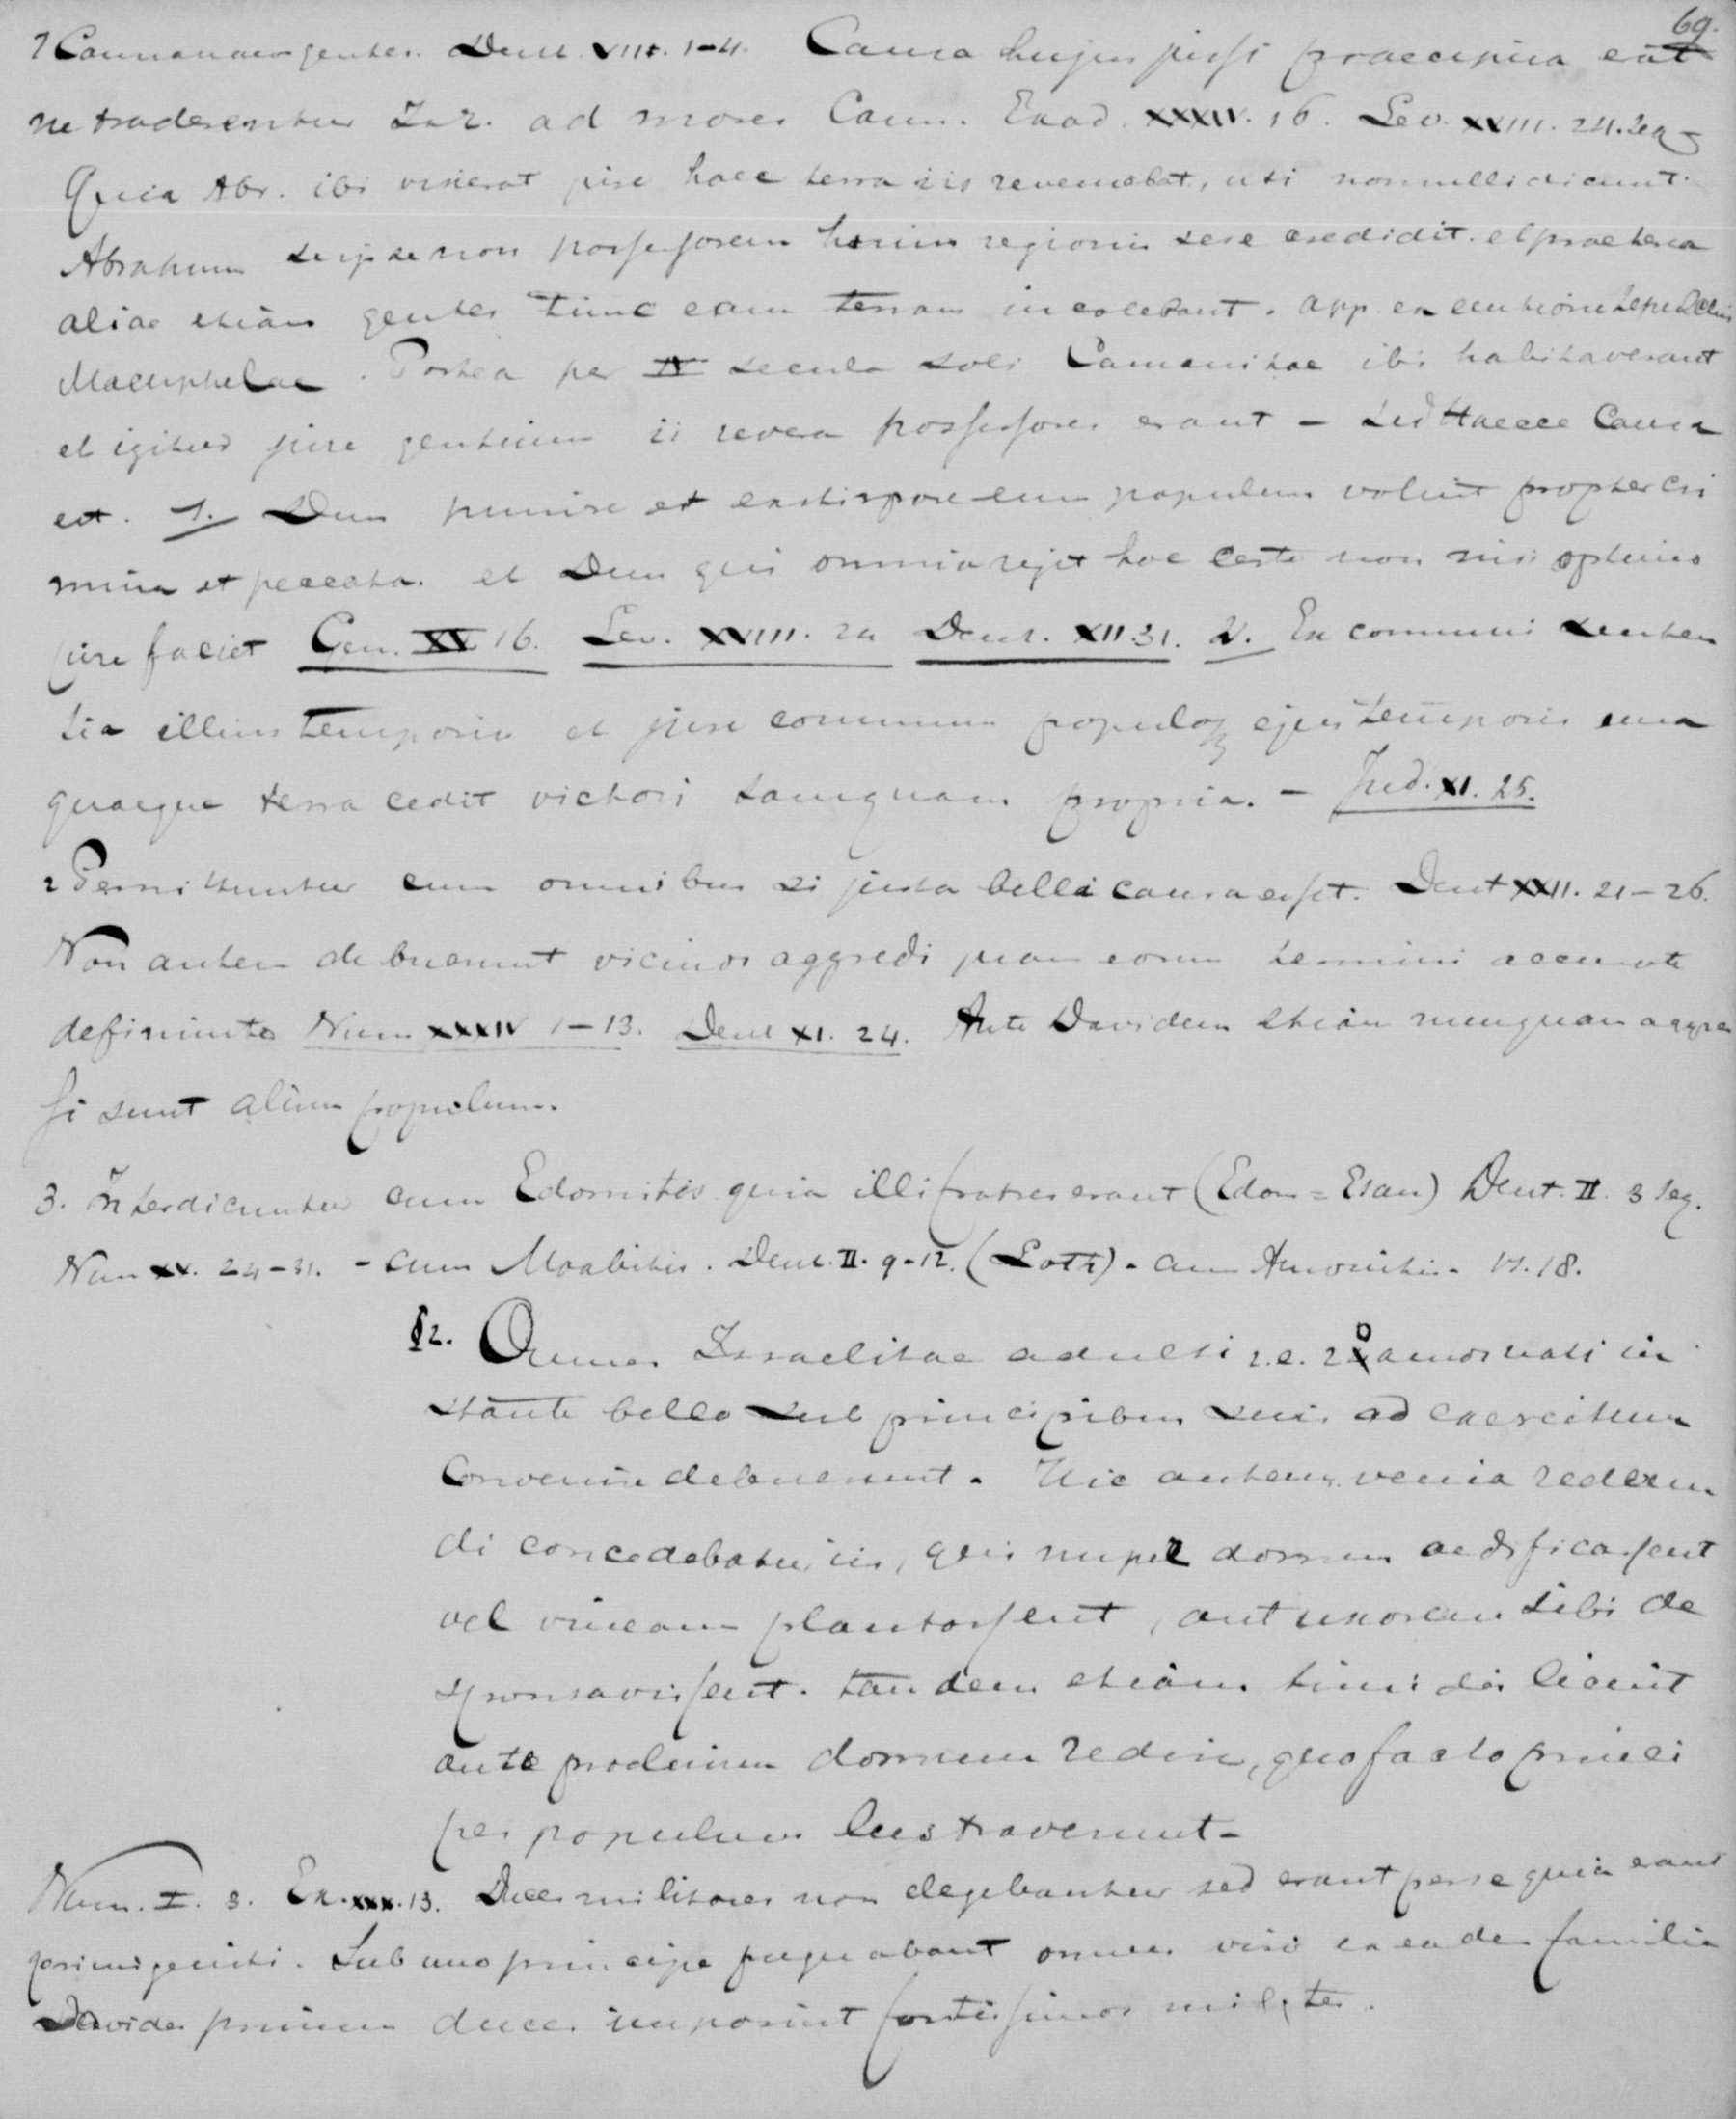 69.
1 Cannanaeos gentes. Deut. VIII. 1-4. Causa hujus jussi praecipua est
ne traderentur Isr. ad mores Cann. Exod. XXXIV. 16. Lev. XVIII. 24. seq
Quia Abr. ibi vixerat jure haec terra iis reveniebat, uti nonnulli dicunt.
Abraham se ipse non possessorem horum regionis sese credidit. et praeterea
aliae etiam gentes tunc eam terram incolebant. app. ex emtione sepulchri
Macuphelae. Postea per IV secula soli Cananitae ibi habitaverant
et igitur jure gentium ii revera possessores erant - sed Haecce Causa
est. 1. Deus punire et exstirpare eum populum voluit propter cri
mina et peccata. et Deus qui omnia regit hoc certe non nisi optimo
jure faciet Gen. XV 16. Lev. XVIII. 24 Deut. XII 31. 2. Ex communi senten
tia illius temporis et jure communi populoꝝ ejus temporis una
quaeque terra cedit victori tamquam propria. - Jud. XI. 25.
2 Permittuntur cum omnibus si justa belli causa esset. Deut XXII. 21-26.
Non autem debuerunt vicinos aggredi quam eorum termini accurate
definiunto Num XXXIV 1-13. Deut XI. 24. Ante Davidem etiam nunquam aggres
si sunt alium populum.
3. Interdicuntur cum Edomitis quia illi fratres erant (Edom = Esau) Deut. II. 3 seq.
Num XX. 24-21. - cum Moabitis. Deut. II. 9-12. (Loth). cum Amonitis. 17. 18.
§2. Omnes Israelitae adulti i.e. 20 annos nati in
stante bello sub principibus suis ad exercitum
Convenire debuerunt. Hic autem venia redeun
di concedebatur iis, qui nuper domum aedificassent
vel vineam plantassent, aut uxorem sibi de
sponsavissent. tandem etiam timidis licuit
ante proelium domum redire, quo facto princi
pes populum lustraverunt.
Num. I. 3. Ex. XXX. 13. Duces militares non elegebantur sed erant per se quia erant
primigeniti. Sub uno principe pugnabant omnes viri ex eadem familia
Davides primum duces imposuit fortissimos milites.